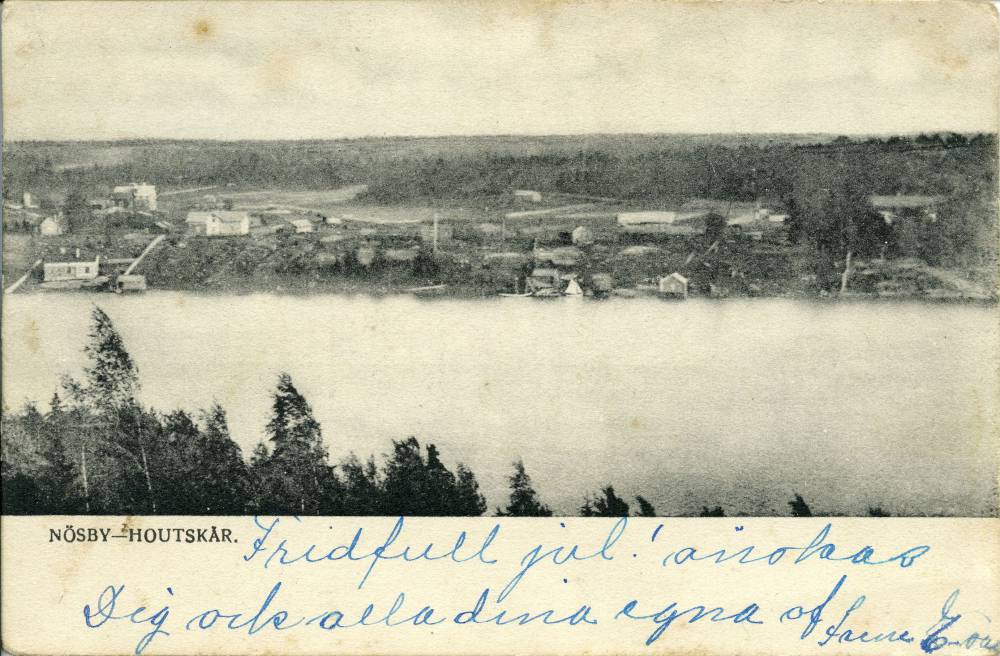 NÖSBY—HOUTSKÄR.
Fridfull jul! önskas
Dig ock alla dina egna af Irene